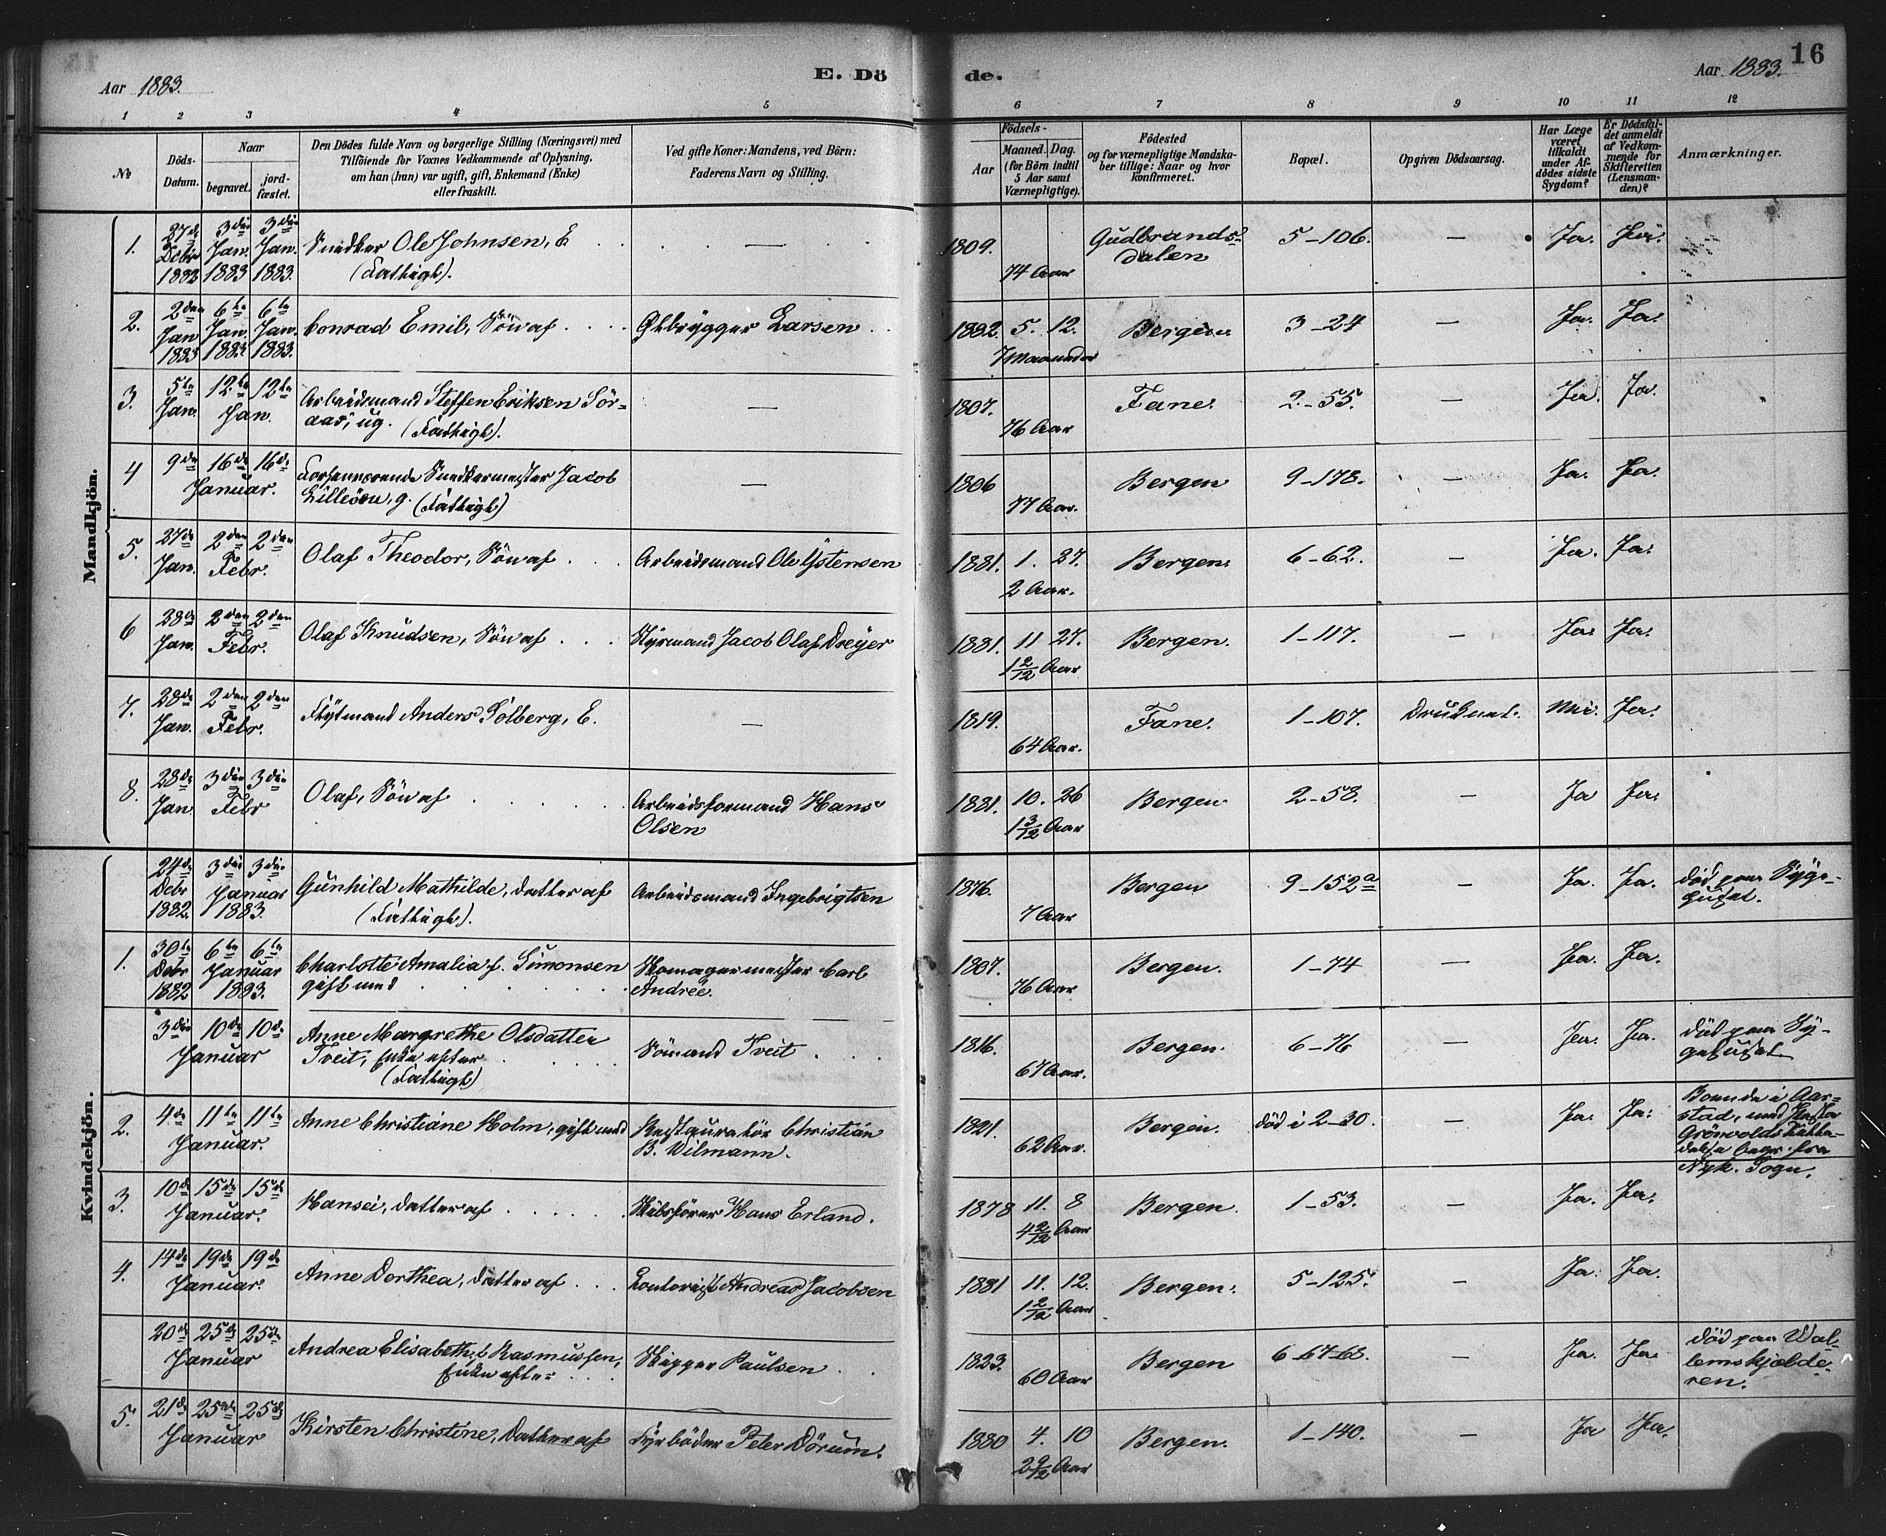 Aar 1883.
E. Dö
de.
Aar 1883.
16
1 2 3 4 5 6 7 8 9 10 11 12
No
Döds-Datum.
Naar
begravet.
jord-fæstet.
Den Dödes fulde Navn og borgerlige Stilling (Næringsvei) med
Tilföiende for Voxnes Vedkommende af Oplysning,
om han (hun) var ugift, gift, Enkemand (Enke)
eller fraskilt.
Ved gifte Koner: Mandens, ved Börn:
Faderens Navn og Stilling.
Födsels-
Aar
Maaned. Dag.
(for Börn indtil
5 Aar samt
Værnepligtige).
Födested
og for værnepligtige Mandska-
ber tillige: Naar og hvor
konfirmeret.
Bopæl.
Opgiven Dödsaarsag.
Har Læge
været
tilkaldt
under Af-
dödes sidste
Sygdom?
Er Dödsfal-
det anmeldt
af Vedkom-
mende for
Skifteretten
(Lensman-
den)?
Anmærkninger.
Mandkjön.
1. 27de Debr 1882 3die Jan. 1883 3die Jan. 1883. Snedker Ole Johnsen, E (Fattigl). — 1809. 74 Aar Gudbrandsdalen 5-106. — Ja. Ja.
2. 2den Jan 1883 6te Jan. 1883 6te Jan. 1883. Conrad Emil, Sön af Ölbrygger Larsen 1882. 5. 12. 7 Maaneder Bergen. 3-24 — Ja. Ja.
3. 5te Jan. 12te 12te Jan. Arbeidsmand Steffen Eriksen Sör-
aas, ug. (Fattigl). — 1807. 76 Aar Fane. 2-55. — Ja. Ja.
4 9de 16de 16de Januar. Forhenværende Snedkermester Jacob
Lilleöen, g. (Fattigl) — 1806 77 Aar. Bergen 9-178. — Ja. Ja.
5. 27de Jan. 2den 2den Febr. Olaf Theodor, Sön af Arbeidsmand Ole Ystensen 1881. 1. 27. 2 Aar. Bergen. 6-62. — Ja. Ja.
6 28de Jan. 2den 2den Febr. Olaf Knudsen, Sön af Styrmand Jacob Olaf Dreyer 1881. 11 27. 1 2/12 Aar Bergen. 1-117. — Ja. Ja.
7. 28de Jan. 2den 2den Febr. Flytmand Anders Solberg, E. — 1819. 64 Aar. Fane. 1-107. Druknet. Nei. Ja.
8. 28de Jan. 3die 3die Febr Olaf, Sön af Arbeidsformand Hans
Olsen 1881. 10. 26 1 3/12 Aar Bergen 2-58. — Ja Ja.
Kvindekjön.
24de Debr 1882. 3die 3die Januar 1883. Gunhild Mathilde, Datter af (Fattigl). Arbeidsmand Ingebrigtsen 1876. 7 Aar Bergen 9-152a — Ja. Ja. Död paa Syge-
huset.
1. 30te Debr 1882 6te 6te Januar 1883. Charlotte Amalia f. Simonsen
gift med Skomagermester Carl
Andrée. 1807. 76 Aar Bergen. 1-74 — Ja. Ja.
3die 10de 10de Januar Anne Margrethe Olsdatter
Tveit, Enke efter (Fattigl) Sömand Tveit 1816. 67 Aar. Bergen. 6-76 — Ja. Ja. Död paa Sy-
gehuset
2. 4de 11te 11te Januar. Anne Christiane Holm, gift med Restauratör Christian
B. Wilmann. 1821. 62 Aar. Bergen. Död i 2-30. — Ja. Ja. Boende i Aar-
stad, med
Grönvolds
begr. fra
Nyk. Sogn.
3. 10de 15de 15de Januar. Hansei, Datter af Skibsförer Hans Erland. 1878 11. 8 4 2/12 Aar Bergen. 1-53. — Ja. Ja.
4. 14de 19de 19de Januar. Anne Dorthea, Datter af Contorist Andreas Jacobsen 1881 11. 12. 1 2/12 Aar Bergen. 5-125. — Ja. Ja.
20de 25de 25de Januar Andrea Elisabeth f. Rasmussen,
Enke efter Skipper Paulsen 1823. 60 Aar Bergen 6-67-68. — Ja. Ja. Död paa Wal-
lemskjælde-
ren.
5. 21de 25de 25de Januar Kirsten Christine, Datter af Fyrböder Peter Dörum. 1880 4. 10 2 9/12 Aar Bergen. 1-140. — Ja Ja.